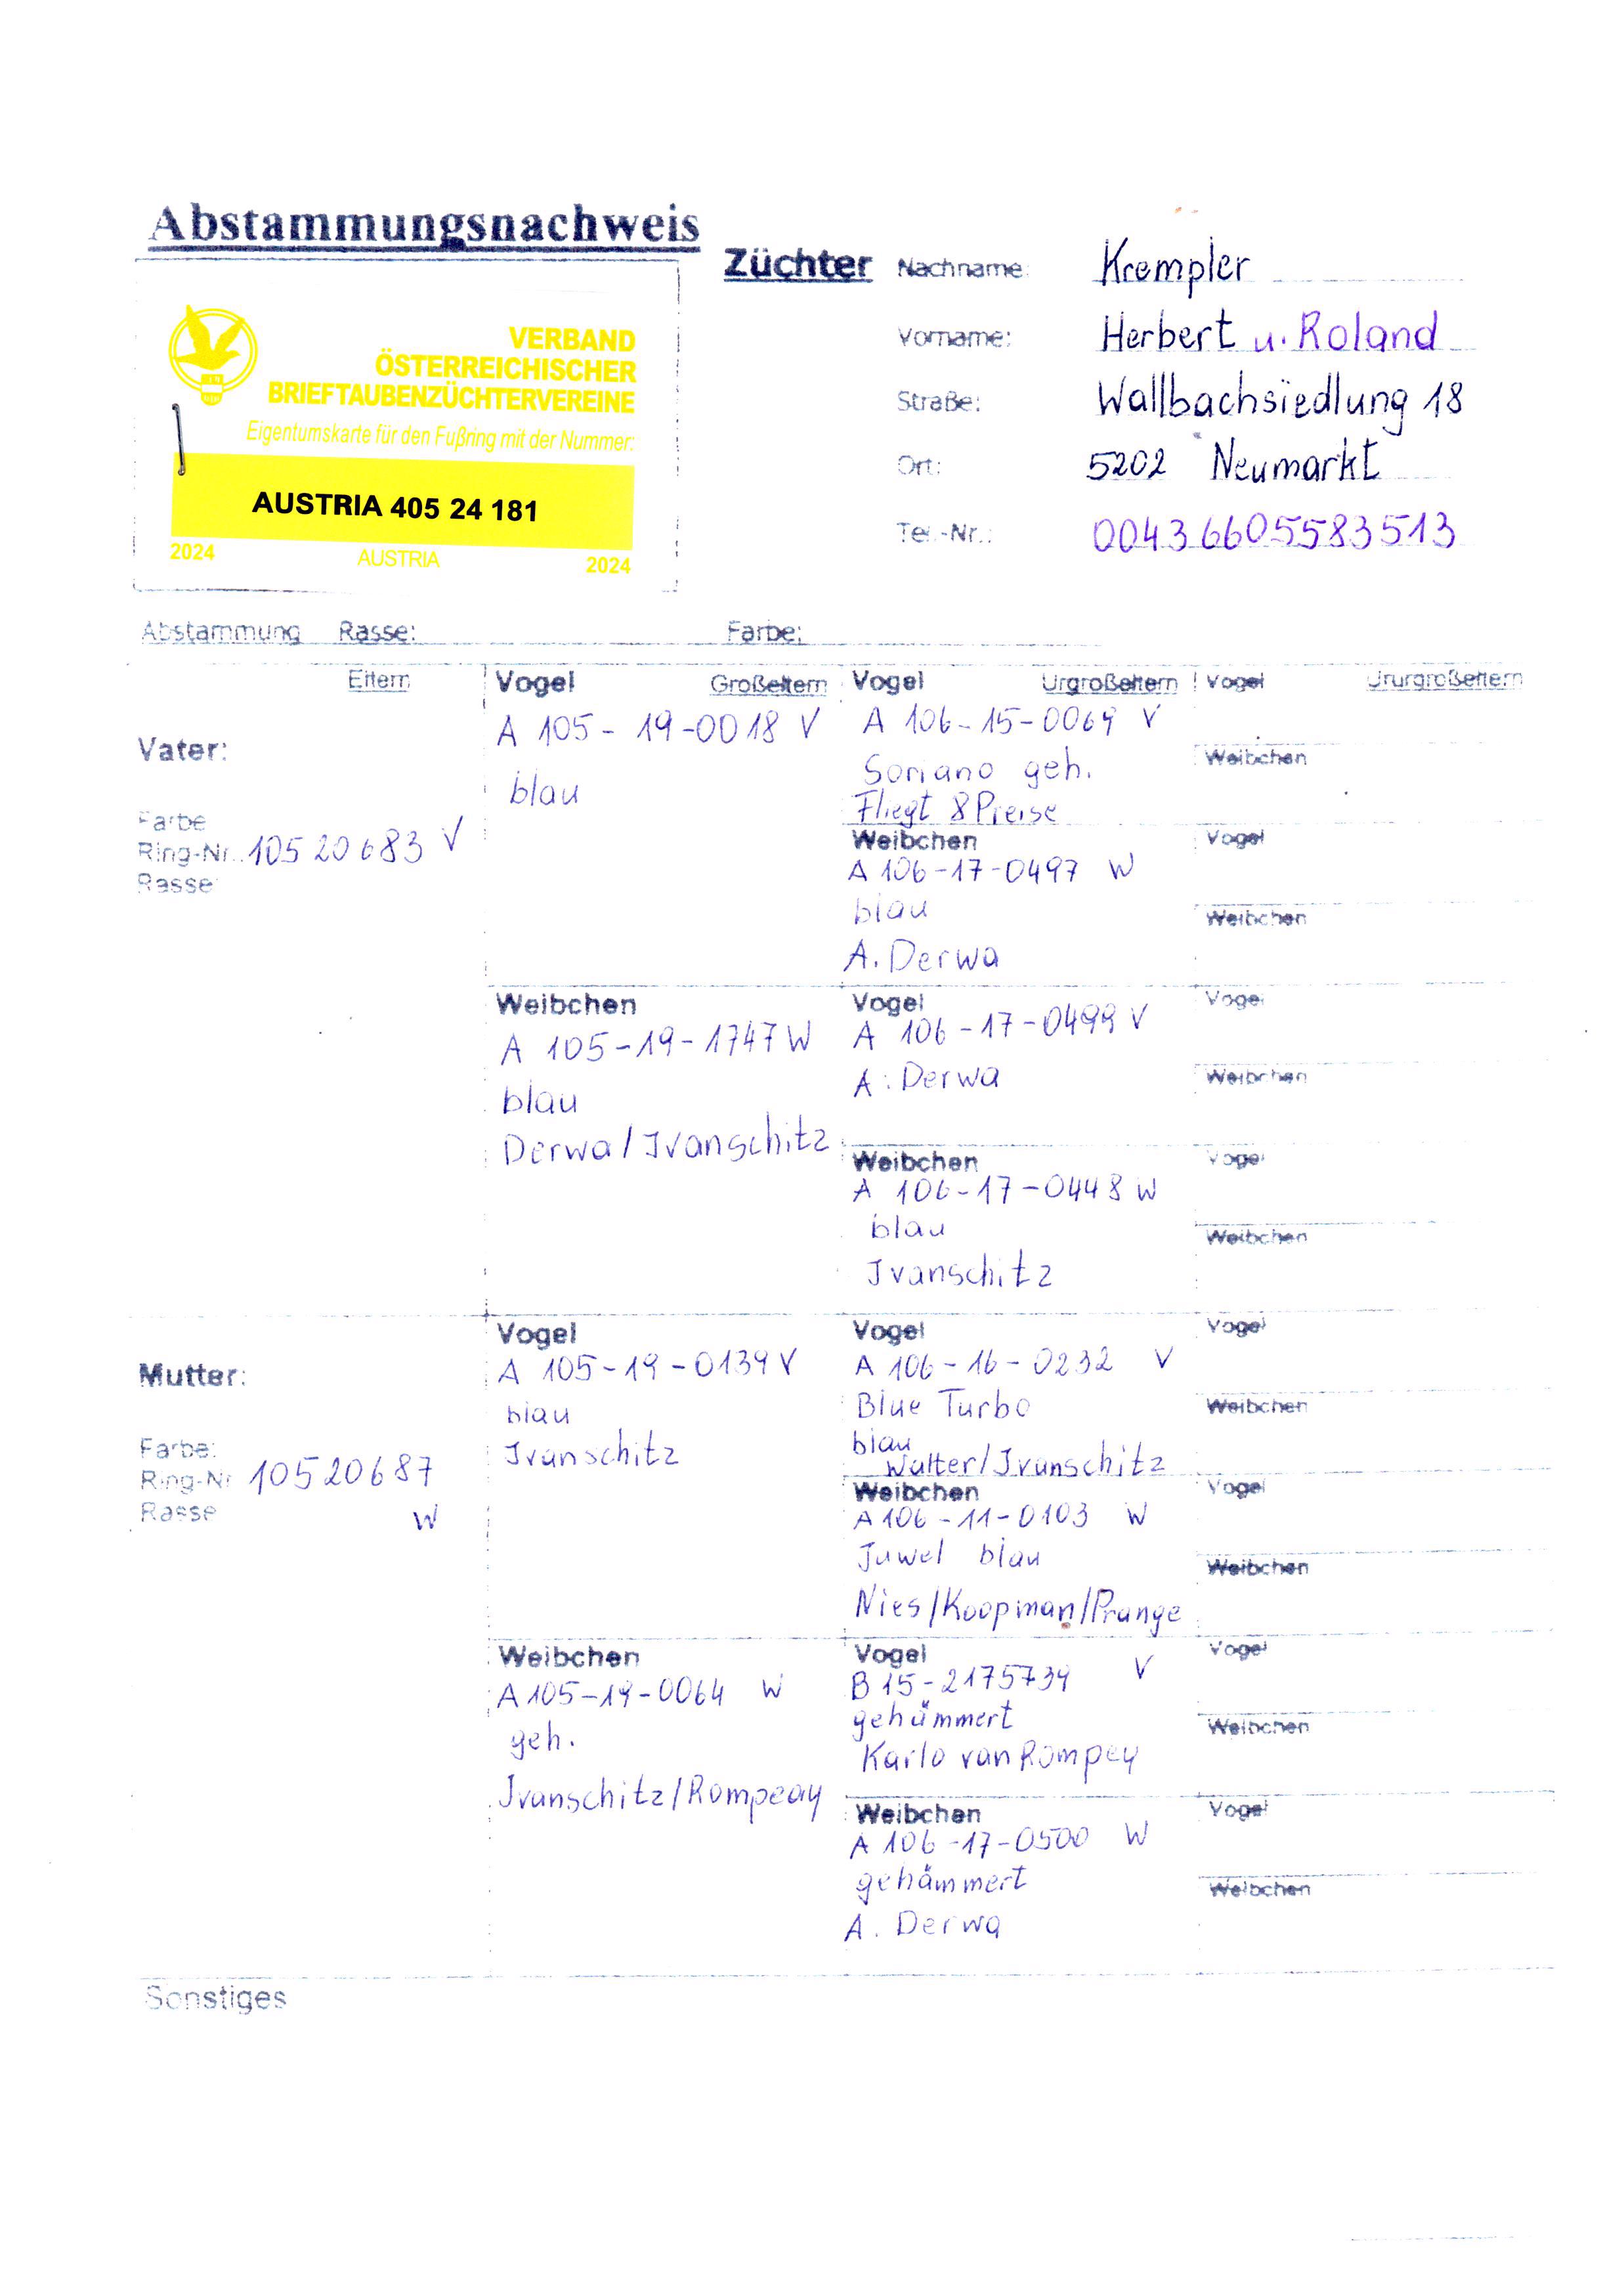 Abstammungsnachweis
Züchter Nachname: Krempler
Vorname: Herbert u. Roland
Straße: Wallbachsiedlung 18
Ort: 5202 Neumarkt
Tel.-Nr.: 00436605583513
VERBAND
ÖSTERREICHISCHER
BRIEFTAUBENZÜCHTERVEREINE
Eigentumskarte für den Fußring mit der Nummer:
AUSTRIA 405 24 181
2024 AUSTRIA 2024
Abstammung Rasse: Farbe:
Eltern
Vater:
Farbe
Ring-Nr. 105 20 683 V
Rasse
Vogel Großeltern
A 105-19-0018 V
blau
Weibchen
A 105-19-1747 W
blau
Derwa/Ivanschitz
Vogel Urgroßeltern
A 106-15-0069 V
Soriano geh.
Fliegt 8 Preise
Weibchen
A 106-17-0497 W
blau
A. Derwa
Vogel
A 106-17-0499 V
A. Derwa
Weibchen
A 106-17-0448 W
blau
Ivanschitz
Vogel Ururgroßeltern
Weibchen
Vogel
Weibchen
Vogel
Weibchen
Vogel
Weibchen
Mutter:
Farbe:
Ring-Nr 10520687
Rasse W
Vogel
A 105-19-0139 V
blau
Ivanschitz
Weibchen
A 105-19-0064 W
geh.
Ivanschitz/Rompeay
Vogel
A 106-16-0232 V
Blue Turbo
blau
Walter/Ivanschitz
Weibchen
A 106-11-0103 W
Juwel blau
Nies/Koopman/Prange
Vogel
B 15-2175739 V
gehämmert
Karlo van Rompey
Weibchen
A 106-17-0500 W
gehämmert
A. Derwa
Vogel
Weibchen
Vogel
Weibchen
Vogel
Weibchen
Vogel
Weibchen
Sonstiges